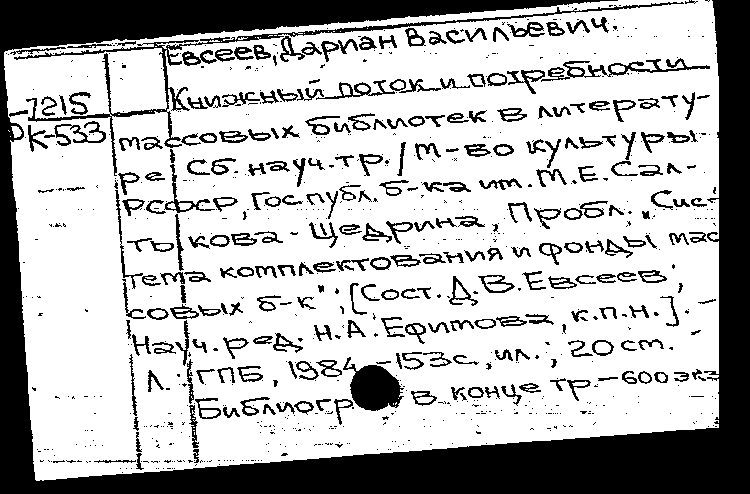 Евсеев, Дариан Васильевич.
Книжный поток и потребности
-7215
К-533
массовых библиотек в литерату-
ре: Сб. науч. тр. / М-во культуры
РСФСР, Гос. публ. б-ка им. М.Е. Сал-
тыкова-Щедрина, Пробл. „Сис-
тема комплектования и фонды мас
совых б-к"; [Сост. Д.В. Евсеев;
Науч. ред. Н.А. Ефимова, к.п.н.]. -
Л.: ГПБ, 1984. -153 с., ил.; 20 см. -
Библиогр в конце тр. - 600 экз